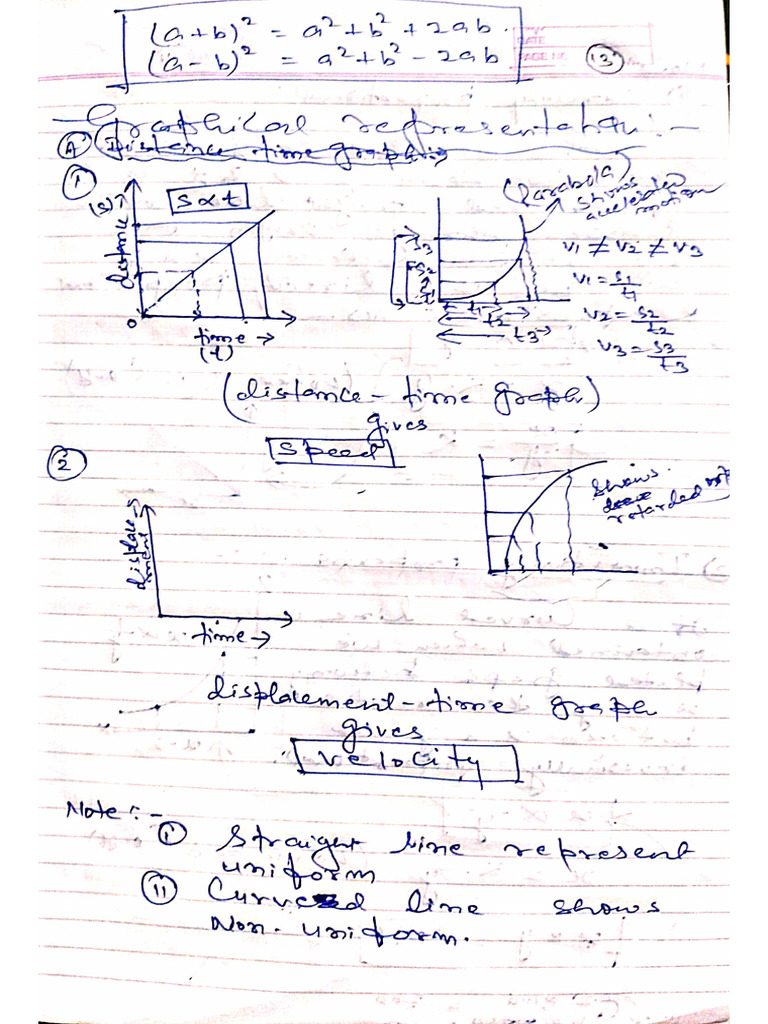 (a+b)² = a²+b²+2ab.
(a-b)² = a²+b²-2ab
DATE
PAGE NO.
13
Graphical representation:-
A Distance-time graph:
1
s∝t
(s)
distance
0
time →
(t)
(Parabola)
shows
accelerated
motion
s3
s2
s1
t1
t2
t3
v1 ≠ v2 ≠ v3
v1 = s1/t1
v2 = s2/t2
v3 = s3/t3
(distance-time graph)
gives
speed
2
displace
ment
time →
shows
retarded
displacement-time graph
gives
velocity
Note:-
i Straight line represent
uniform
ii Curved line shows
Non. uniform.